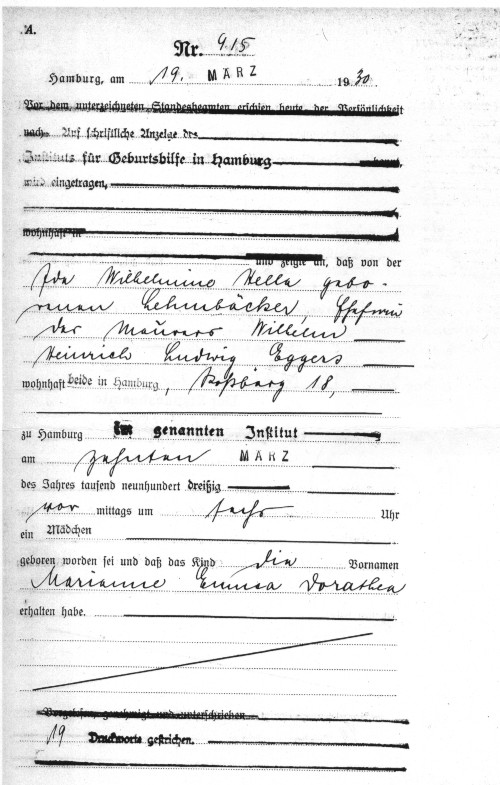 A.
Nr. 915
Hamburg, am 19. MÄRZ 1930
Vor dem unterzeichneten Standesbeamten erschien heute, der Persönlichkeit
nach Auf schriftliche Anzeige des
Instituts für Geburtshilfe in Hamburg
wird eingetragen,
wohnhaft in
und zeigte an, daß von der
Ida Wilhelmine Hella gebo-
renen Lehmbäcker, Ehefrau
des Maurers Wilhelm
Heinrich Ludwig Eggers
wohnhaft beide in Hamburg, Roßberg 18,
zu Hamburg im genannten Institut
am zehnten MÄRZ
des Jahres tausend neunhundert dreißig
vor mittags um sechs Uhr
ein Mädchen
geboren worden sei und daß das Kind die Vornamen
Marianne Emma Dorathea
erhalten habe.
Vorgelesen, genehmigt und unterschrieben
19 Druckworte gestrichen.